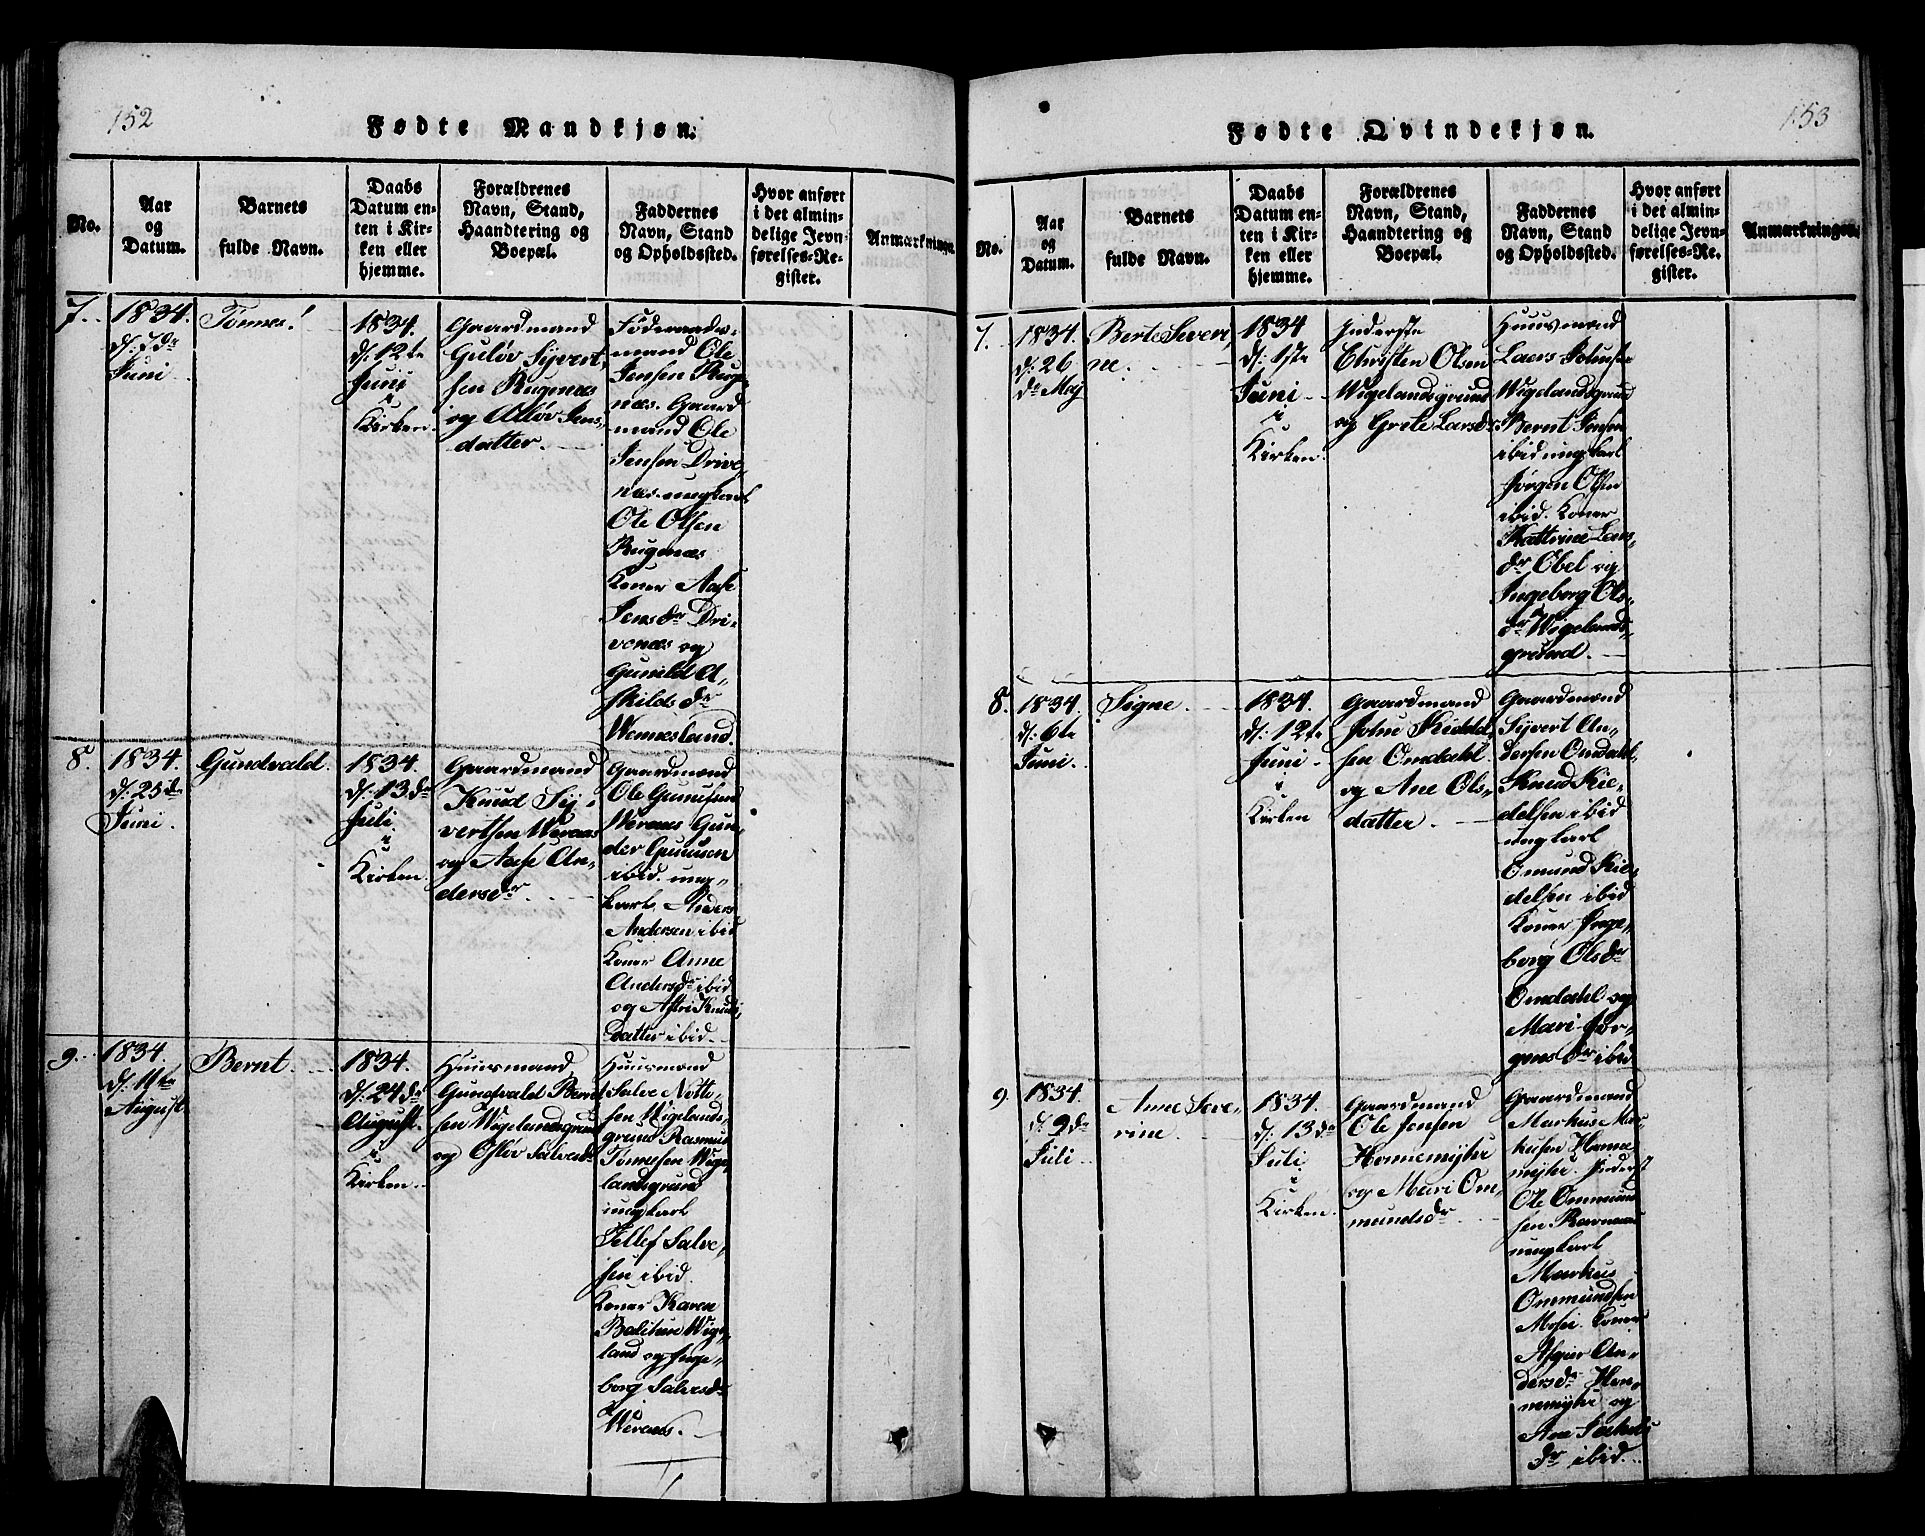 152
Fødte Mandkjøn.
No.
Aar
og
Datum.
Barnets
fulde Navn.
Daabs
Datum en-
ten i Kir-
ken eller
hjemme.
Forældrenes
Navn, Stand,
Haandtering og
Boepæl.
Faddernes
Navn, Stand
og Opholdssted.
Hvor anført
i det almin-
delige Jevn-
førelses-Re-
gister.
Anmærkninger.
7.
1834.
Juni
Tønnes.
1834.
d. 12te
Juni
i
Kirken.
Gaardmand
Guløv Syvert,
sen Rugenæs
og Atløv Jens,
datter.
Føderaads-
mand Ole
Jensen Rug-
næs. Gaard
mand Ole
Jensen Drive,
næs. ungkarl
Ole Olsen
Rugenæs
Koner Aase
Jensdr Dri-
venæs og
Gunild A-
skildsdr
Wennesland.
8.
1834.
d. 25de
Juni.
Gundvald.
1834.
d. 13de
Juli.
i
Kirken.
Gaardmand
Knud Sy-
vertsen Weraas
og Aase An-
dersdr.
Gaardmænd
Ole Gunusen
Weraas Gun-
der Gunusen
ibid. ung-
karl. Anders
Andersen ibid
Koner Anne
Andersdr ibid
og Astri Knuds
datter ibid.
9.
1834.
d. 11te
August.
Bernt.
1834.
d. 24de
August.
i
Kirken.
Huusmand
Gundvald Bernt
sen Wigelandsgrund
og Osløv Salvesdr
Huusmænd
Salve Notto-
sen Wigelands-
grund Rasmus
Tønnesen Wige,
landsgrund
ungkarl
Tellef Salve-
sen ibid.
Koner Karen
Wige,
land og Inge-
borg Salvesdr
Weraas.
153
Fødte Qvindekjøn.
No.
Aar
og
Datum.
Barnets
fulde Navn.
Daabs
Datum en-
ten i Kir-
ken eller
hjemme.
Forældrenes
Navn, Stand,
Haandtering og
Boepæl.
Faddernes
Navn, Stand
og Opholdssted.
Hvor anført
i det almin-
delige Jevn-
førelses-Re-
gister.
Anmærkninger.
7.
1834.
d. 26
de Maj
Berte Severi,
ne.
1834
d. 1ste
Juni
i
Kirken.
Inderste
Christen Olsen
Wigelandsgrund
og Grete Larsdr.
Huusmænd
Laers
Wigelandsgrund
Bernt Jensen
ibid ungkarl
Jørgen Olsen
ibid. Koner
Kattrine Lars,
dr Obel og
Ingeborg Ols-
dr Wigelands-
grund.
8.
1834.
d. 6te
Juni.
Signe.
1834.
d. 12te
Juni
i
Kirken
Gaardmand
John Kiedel,
sen Omdahl
og Ane Ols-
datter.
Gaardmænd
Syvert An-
dersen Omdahl,
Knud Kie-
delsen ibid
ungkarl
Omund Kie-
delsen ibid
Koner Inge-
borg Olsdr
Omdahl og
Mari Jør-
gensdr ibid
9.
1834.
d. 9de
Juli.
Anne Seve-
rine.
1834.
d. 13de
Juli
i
Kirken.
Gaardmand
Ole Jensen
Honnemyhr
og Mari Om-
mundsdr
Gaardmand
Markus Mar-
kusen Honne
myhr.
Ole Ommund
sen Ravnaas
ungkarl
Markus
Ommundsen
Mosei. Koner
Asgier An-
dersdr Hon-
nemyhr og
Ane
dr ibid.